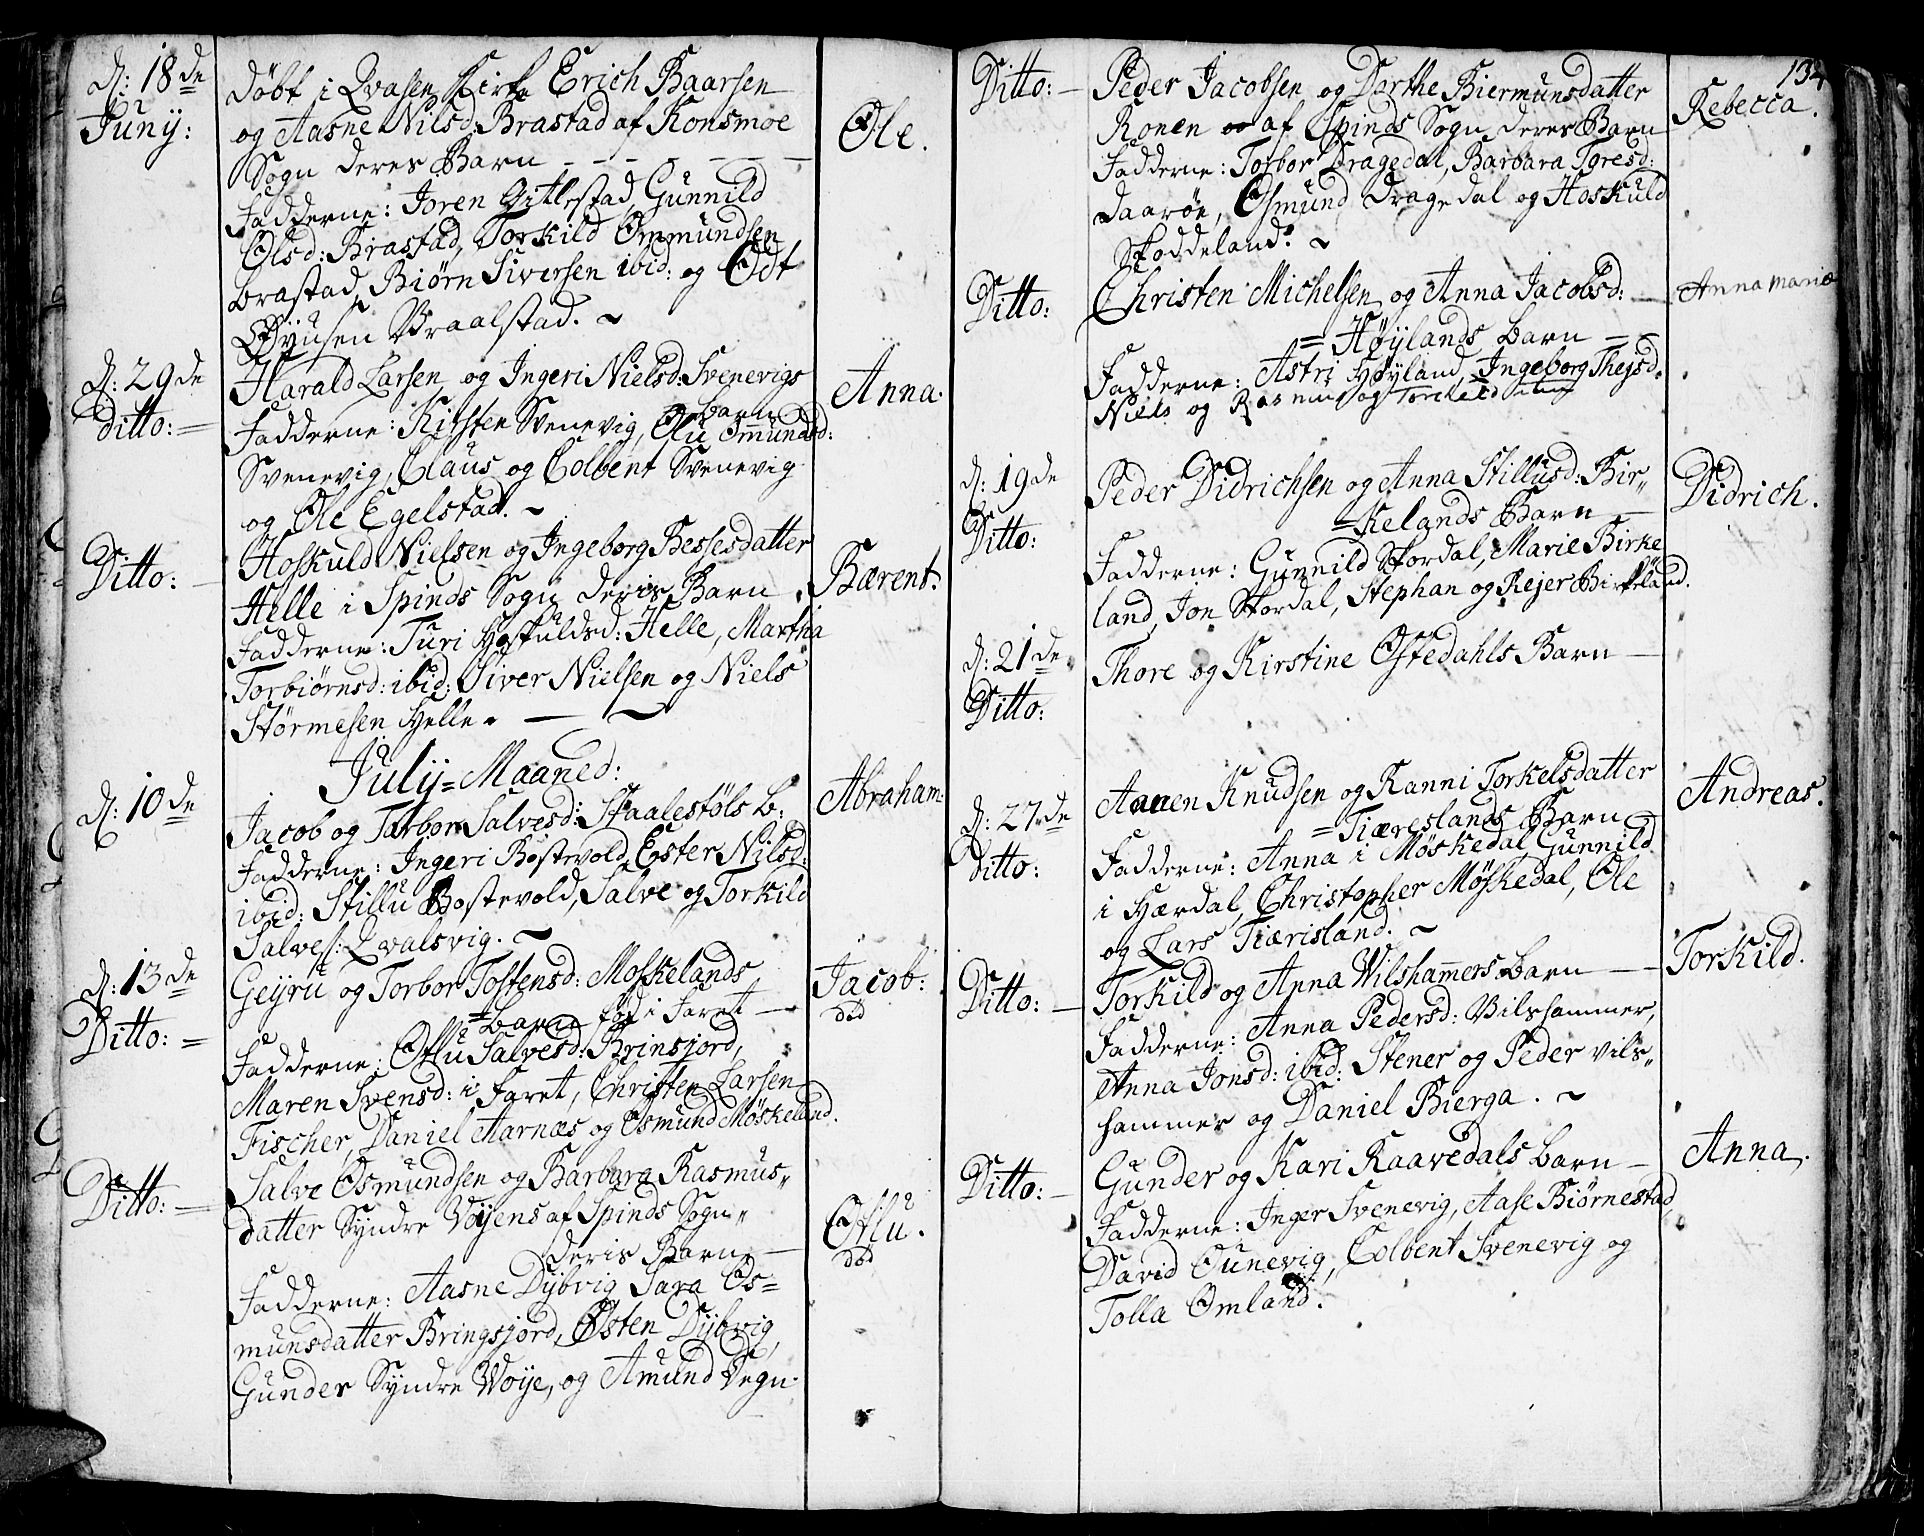 d: 18de
Junÿ:
døbt i Qvasen Kirke Erich Baarsen
og Aasne Nilsd: Brastad af Konsmoe
Sogn deres Barn - - - - - -
Ole.
Fadderne: Joren Gitlestad, Gunnild
Olsd: Brastad, Torkild Ommundsen
Brastad, Biørn Siversen ibid: og Odt
Braalstad. ~
d: 29de
ditto: =
Harald Larsen og Ingeri Nielsd: Svenevigs
Barn
Anna.
Fadderne: Kirsten Svenevig, Olu Omundsd:
Svenevig, Claus og Colbent Svenevig
og Ole Egelstad. ~
Ditto: -
Hoskuld Nielsen og Ingeborg Bessesdatter
Helle i Spinds Sogn deris Barn.
Bærent.
Fadderne: Turi Hoskuldsd: Helle, Martha
Torbiørnsd: ibid: Siver Nielsen og Niels
Størmesen Helle. — ~
Julÿ=Maaned:
d: 10de
Jacob og Tarbor Salvesd: Staalestøls B:
Abraham.
Fadderne: Ingeri Bostevold, Ester Nilsd:
ibid: Stillu Bostevold, Salve og Torkild
Salves: Qvalsvig. ~
d: 13de
Ditto: =
Geÿru og Torbor Tostensd: Moskelands
=Barn fød i Faret —
Jacob:
død
Fadderne: Ollu Salvesd: Brinsjord,
Maren Svensd: i Faret, Christen Larsen
Fischer, Daniel Aarnæs og Osmund Møskeland.
Ditto: -
Salve Osmundsen og Barbara Rasmus„
datter Syndre Voÿens af Spinds Sogn„
deris Barn —
Ollu.
død
Fadderne: Aasne Dÿbvig, Sara Os=
munsdatter Bringsjord, Østen Dÿbvig,
Gunder Syndre Voÿe, og Amund Degn.
134
Ditto: -
Peder Jacobsen og Dorthe Biermunsdatter
Ronen af Spinds Sogn deres Barn
Rebecca.
Fadderne: Torbor Dragedal, Barbara Toresd:
Daarøe, Osmund Dragedal og Hoskuld
Skoddeland. ~
Ditto:
Christen Michelsen og Anna Jacobsd: -
=Høÿlands Barn - -
Anna Maria
Fadderne: Astri Høÿland, Ingeborg Thejsd.
Niels og Rasmus og Torckild
d: 19de
Ditto:
Peder Didrichsen og Anna Stillusd: Bir„
=Kelands Barn —
Didrich.
Fadderne: Gunnild Stordal, Marie Birke
land, Jon Stordal, Stephan og Rejer Birkeland.
d: 21de
Ditto:
Thore og Kirstine Ostedahls Barn —
d: 27de
Ditto:
Aanen Knudsen og Ranni Torkelsdatter
=Tiæreslands Barn
Andreas.
Fadderne: Anna i Møskedal, Gunnild
i Hærdal, Christopher Møskedal, Ole
og Lars Tiærisland. ~
Ditto: -
Torkild og Anna Vilshamers Barn - -
Torkild.
Fadderne: Anna Pedersd: Vilshammer,
Anna Jonsd: ibid: Stener og Peder Vils„
hammer og Daniel Bierga. ~
Ditto: -
Gunder og Kari Raavedals Barn —
Anna.
Fadderne: Inger Svenevig, Aase Biørnestad,
David Tunevig, Colbent Svenevig og
Tolla Omland.